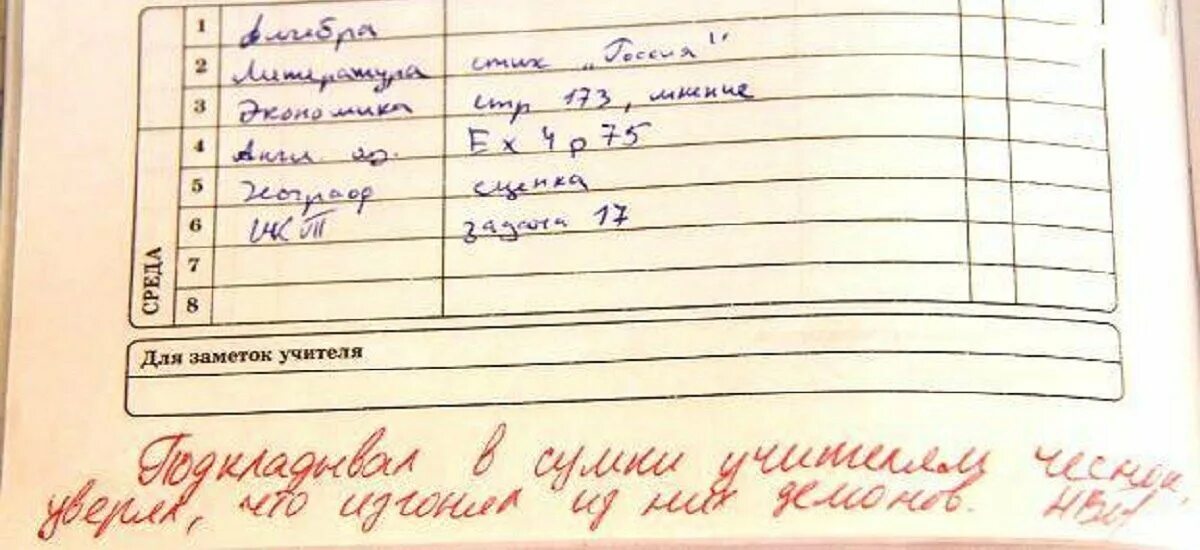 1 Алгебра
2 Литература стих „Россия"
3 Экономика стр 173, мнение
4 Англ яз. Ex 4 p 75
5 Географ сценка
6 ИКТ задача 17
7
8
СРЕДА
Для заметок учителя
Подкладывал в сумки учителям чеснок,
уверял, что изгонял из них демонов.